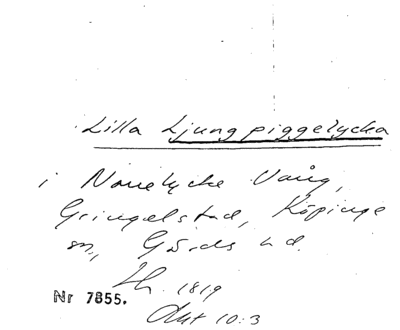 Lilla Ljungpiggelycka
i Norrelycke Vång,
Gringelstad, Köpinge
sn., Gärds hd.
Sk. 1819
Nr 7855.
Akt 10:3